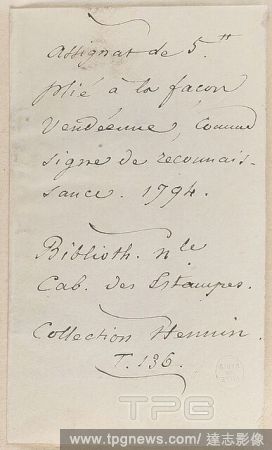 Assignat de 5.tt
plié à la façon
Vendéenne, Comme
signe de reconnais-
sance. 1794.
Biblioth. nle
Cab. des Estampes.
Collection Hennin.
T. 136.
TPG
www.tpgnews.com/達志影像